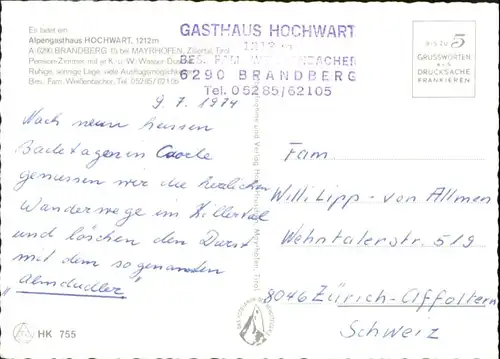 Es ladet ein
Alpengasthaus HOCHWART, 1212m
A 6290 BRANDBERG 15 bei MAYRHOFEN, Zillertal, Tirol
Pension-Zimmer mit je K.- u. W.-Wasser
Ruhige, sonnige Lage, viele Ausflugsmöglichkeiten
Bes. Fam. Weißenbacher, Tel. 05285/62105
GASTHAUS HOCHWART
1212 m
BES. FAM. WEISSENBACHER
6290 BRANDBERG
Tel. 05285/62105
BIS ZU 5
GRUSSWORTEN
ALS
DRUCKSACHE
FRANKIEREN
9. 7. 1974
Nach neun heissen
Badetagen in Caorle
geniessen wir die herrlichen
Wanderwege im Zillertal
und löschen den Durst
mit dem sogenannten
"Almdudler"
Fam.
Willi Lipp - von Allmen
Wehntalerstr. 519
8046 Zürich-Affoltern
Schweiz
HK 755